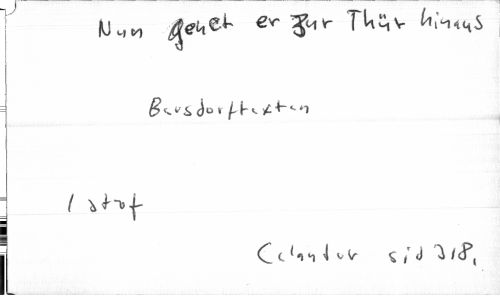 Nun gehet er zur Thür hinaus
Barsdorftexten
1 strof
Celander sid 318.